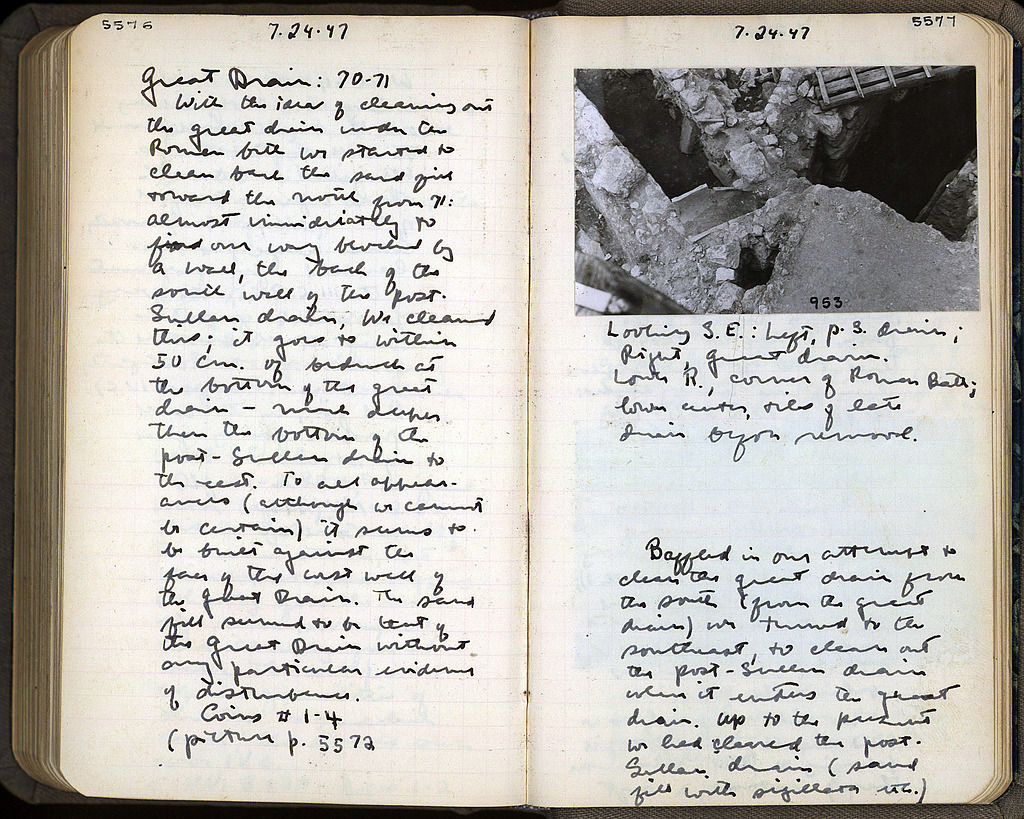 5576
7.24.47
Great Drain: 70-71
With the idea of cleaning out
the great drain under the
Roman bath we started to
clean back the sand fill
toward the north from 71:
almost immidiately to
find our way blocked by
a wall, the back of the
south wall of the post-
Sullan drain. We cleaned
this; it goes to within
50 cm. of bedrock at
the bottom of the great
drain – much deeper
than the bottom of the
post-Sullan drain to
the east. To all appear-
ances (although we cannot
be certain) it seems to
be built against the
face of the east wall of
the Great Drain. The sand
fill seemed to be that of
the Great Drain without
any particular evidence
of disturbance.
Coins # 1-4
(picture p. 5572
5577
7.24.47
953
Looking S.E.: Left, p. S. drain;
Right, great drain.
Lower R., corner of Roman Bath;
lower center, tiles of late
drain before removal.
Baffled in our attempt to
clean the great drain from
the south (from the great
drain) we turned to the
southeast, to clean out
the post-Sullan drain
where it enters the great
drain. Up to the present
we had cleared the post-
Sullan drain (sand
fill with sigillata etc.)